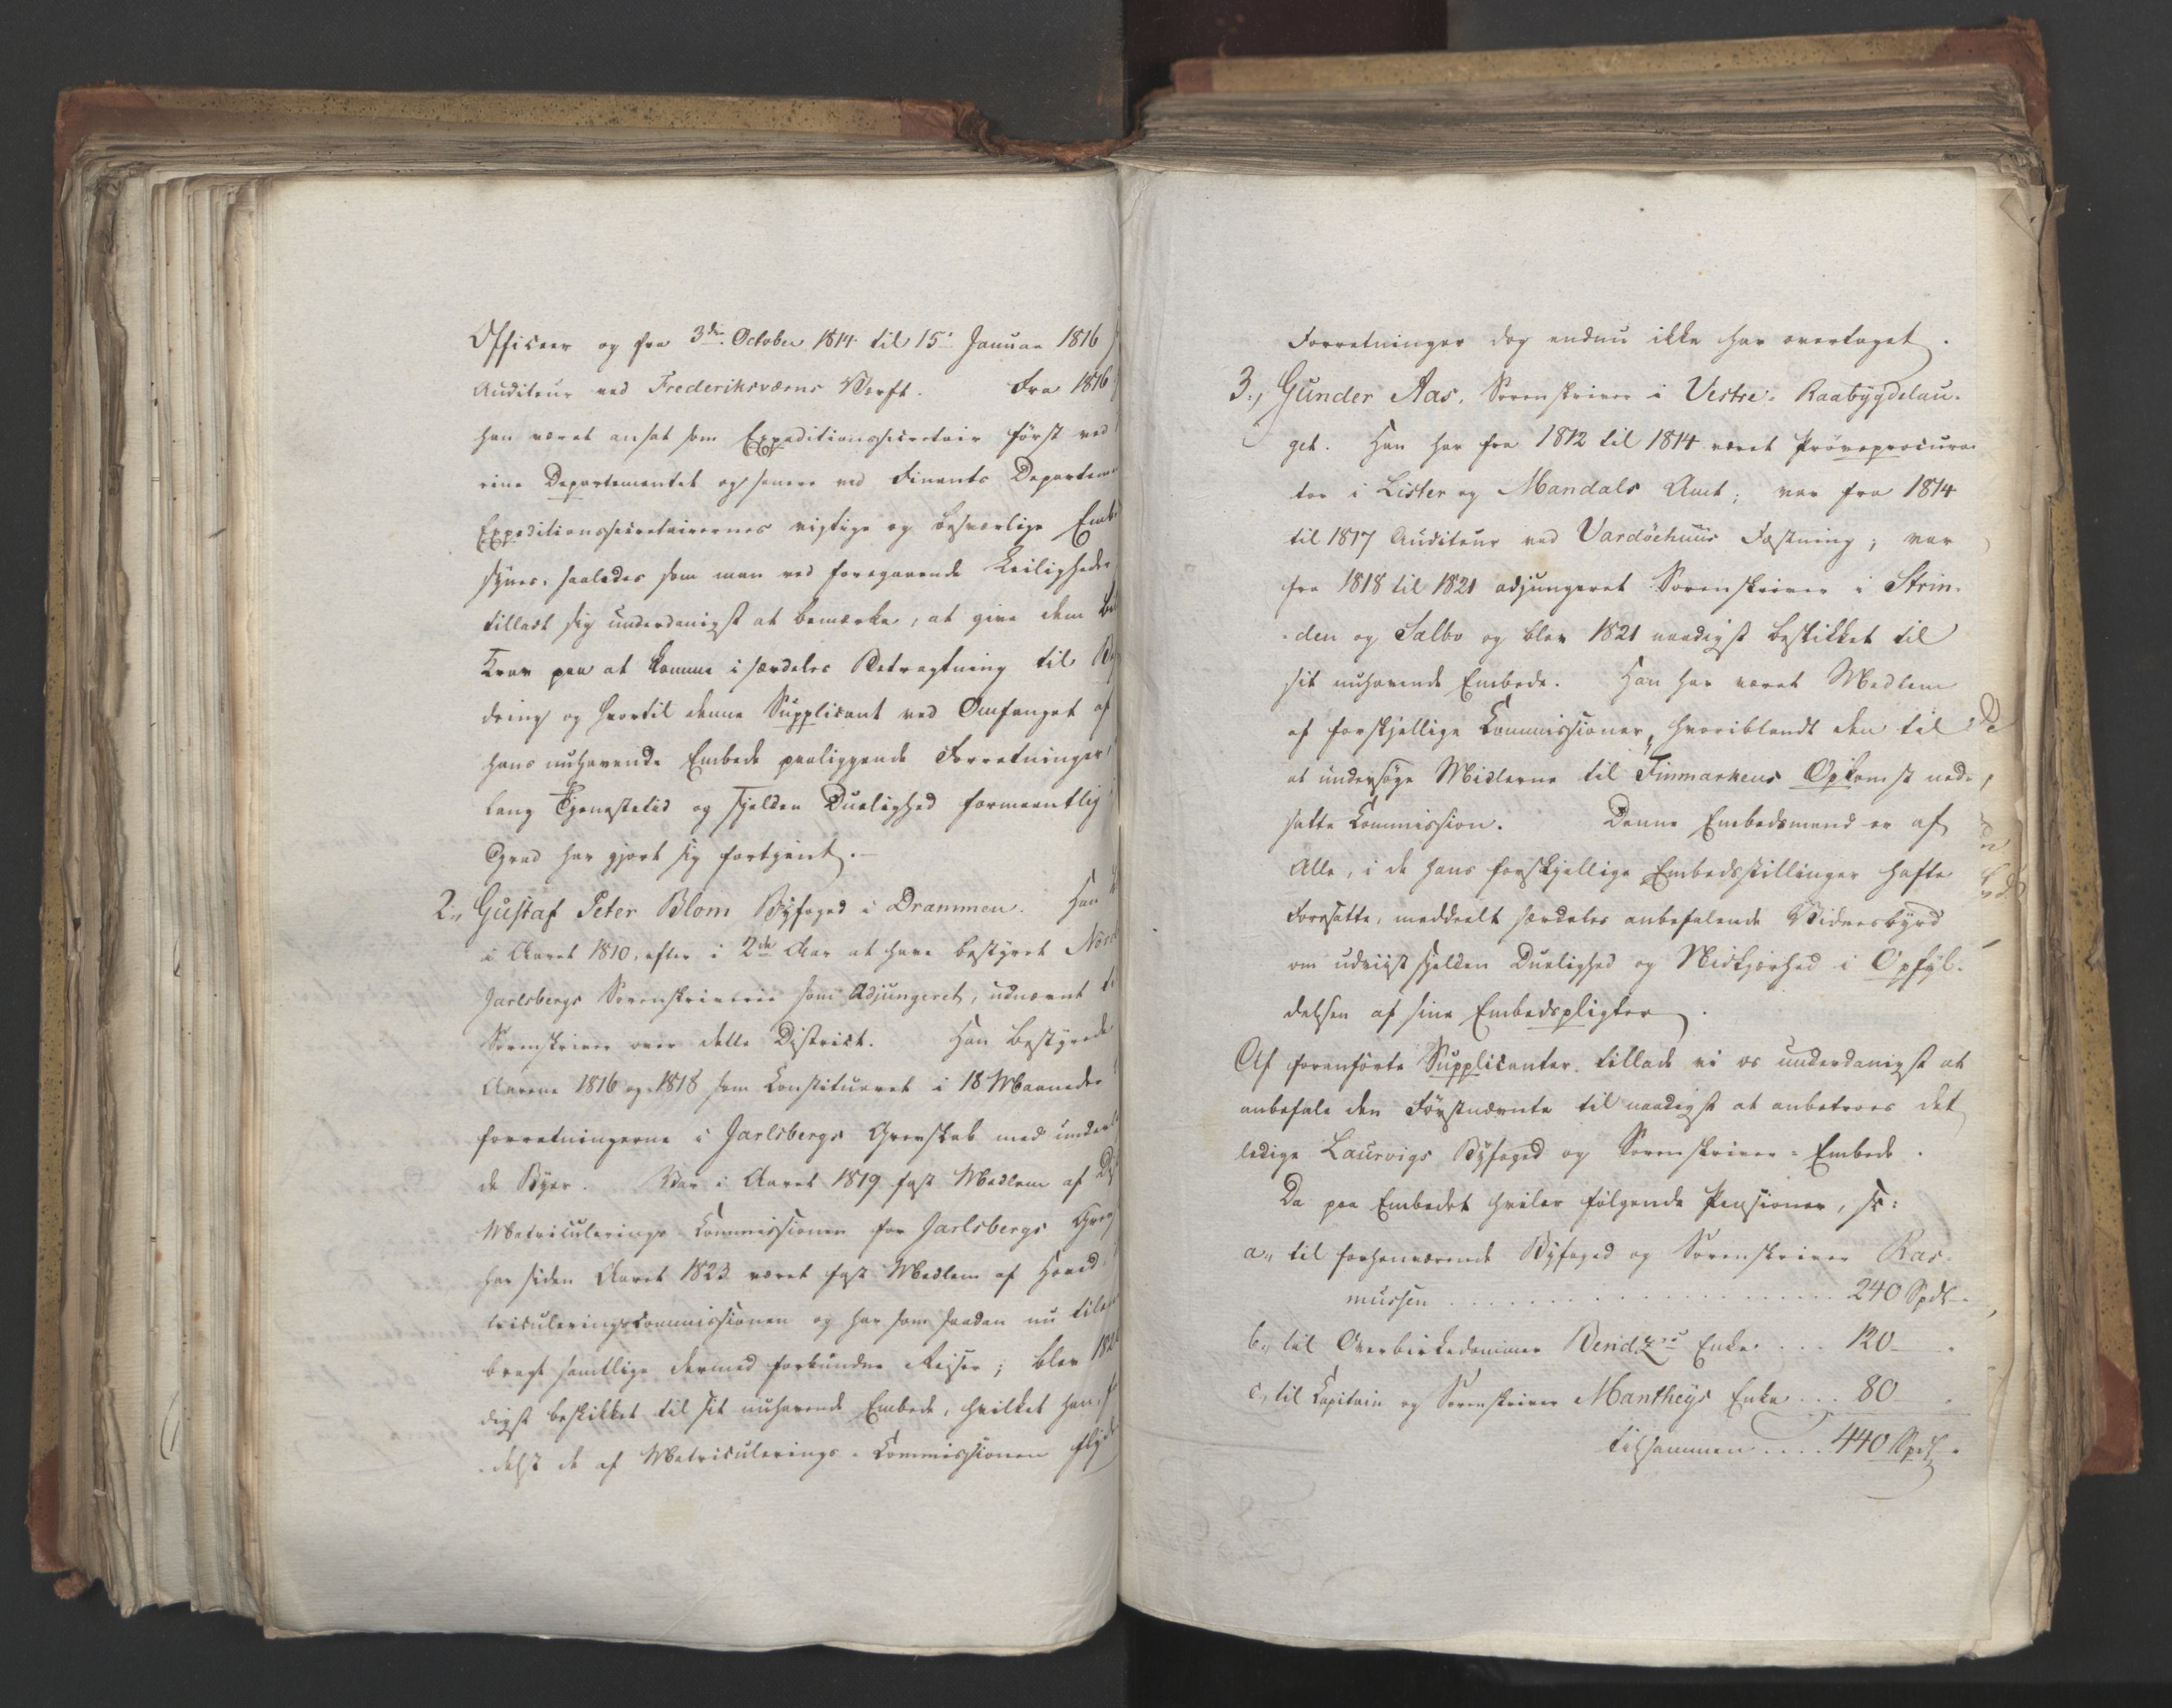 Officeer og fra 3die October 1814 til 15 Januar 1816
Auditeur ved Frederiksværns Værft. Fra 1816
han været ansat som Expeditionssecretair först ved
rine Departementet og senere ved Finants Departem
Expeditionssecretairernes vigtige og besværlige Emb
synes, saaledes som man ved foregaaende Leiligheder
tilladt sig underdanigst at bemærke, at give dem
Krav paa at komme i særdeles Betragtning til
dring og hvortil denne Supplicant ved Omfanget af
hans nuhavende Embede paaliggende Forretninger,
lang Tjenestetid og sjelden Duelighed formeentlig
Grad har gjort sig fortjent.
2., Gustaf Peter Blom Byfoged i Drammen. Han
i Aaret 1810, efter i 2de Aar at have bestyret Nord
Jarlsbergs Sorenskriverie som Adjungeret, udnævnt
Sorenskriver over dette District. Han bestyrede
Aarene 1816 og 1818 som Constitueret i 18 Maaneder
forretningerne i Jarlsbergs Grevskab med under
de Byer. Var i Aaret 1819 fast Medlem af
Matriculerings Commissionen for Jarlsbergs Grev
har siden Aaret 1823 været fast Medlem af Hoved
triculeringscommissionen og har som saadan nu tilende
bragt samtlige dermed forbundne Reiser; blev 182
digst beskikket til sit nuhavende Embede, hvilket han
delst de af Matriculerings-Commissionen flyde
Forretninger dog endnu ikke har overtaget.
3., Gunder Aas, Sorenskriver i Vestre Raabygdelau-
get. Han har fra 1812 til 1814 været Pröveprocura-
tor i Lister og Mandals Amt; var fra 1814
til 1817 Auditeur ved Vardöehuus Fæstning; var
fra 1818 til 1821 adjungeret Sorenskriver i Strin-
den og Sælbo og blev 1821 naadigst beskikket til
sit nuhavende Embede. Han har været Medlem
af forskjellige Commissioner, hvoriblandt den til
at undersøge Midlerne til Finmarkens Opkomst ned-
satte Commission. Denne Embedsmand er af
Alle, i de hans forskjellige Embedsstillinger hafte
Foresatte, meddeelt særdeles anbefalende Vidnesbyrd
om udviist sjelden Duelighed og Nidkjærhed i Opfyl-
delsen af sine Embedspligter.
Af foranførte Supplicanter tillade vi os underdanigst at
anbefale den Førstnævnte til naadigst at anbetroes det
ledige Laurvigs Byfoged og Sorenskriver-Embede.
Da paa Embedet hviler følgende Pensioner, sc:
a., til forhenværende Byfoged og Sorenskriver Ras-
mussen . . . . 240 Spds.
b., til Overbirkedommer Bendz's Enke . . . 120 .
c., til Capitain og Sorenskriver Mantheys Enke . . . 80 .
tilsammen . . . . 440 Spds.